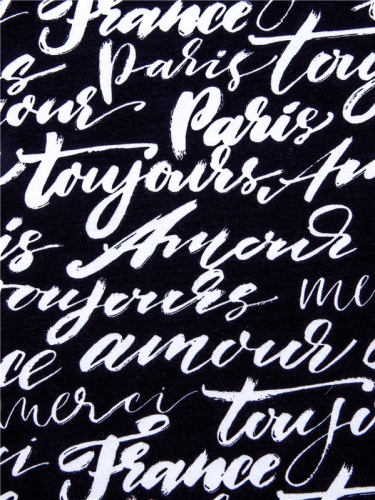 France
Paris touj
our Paris
toujours, Am
is Amour
oujours me
ce amour
merci toujo
ci France